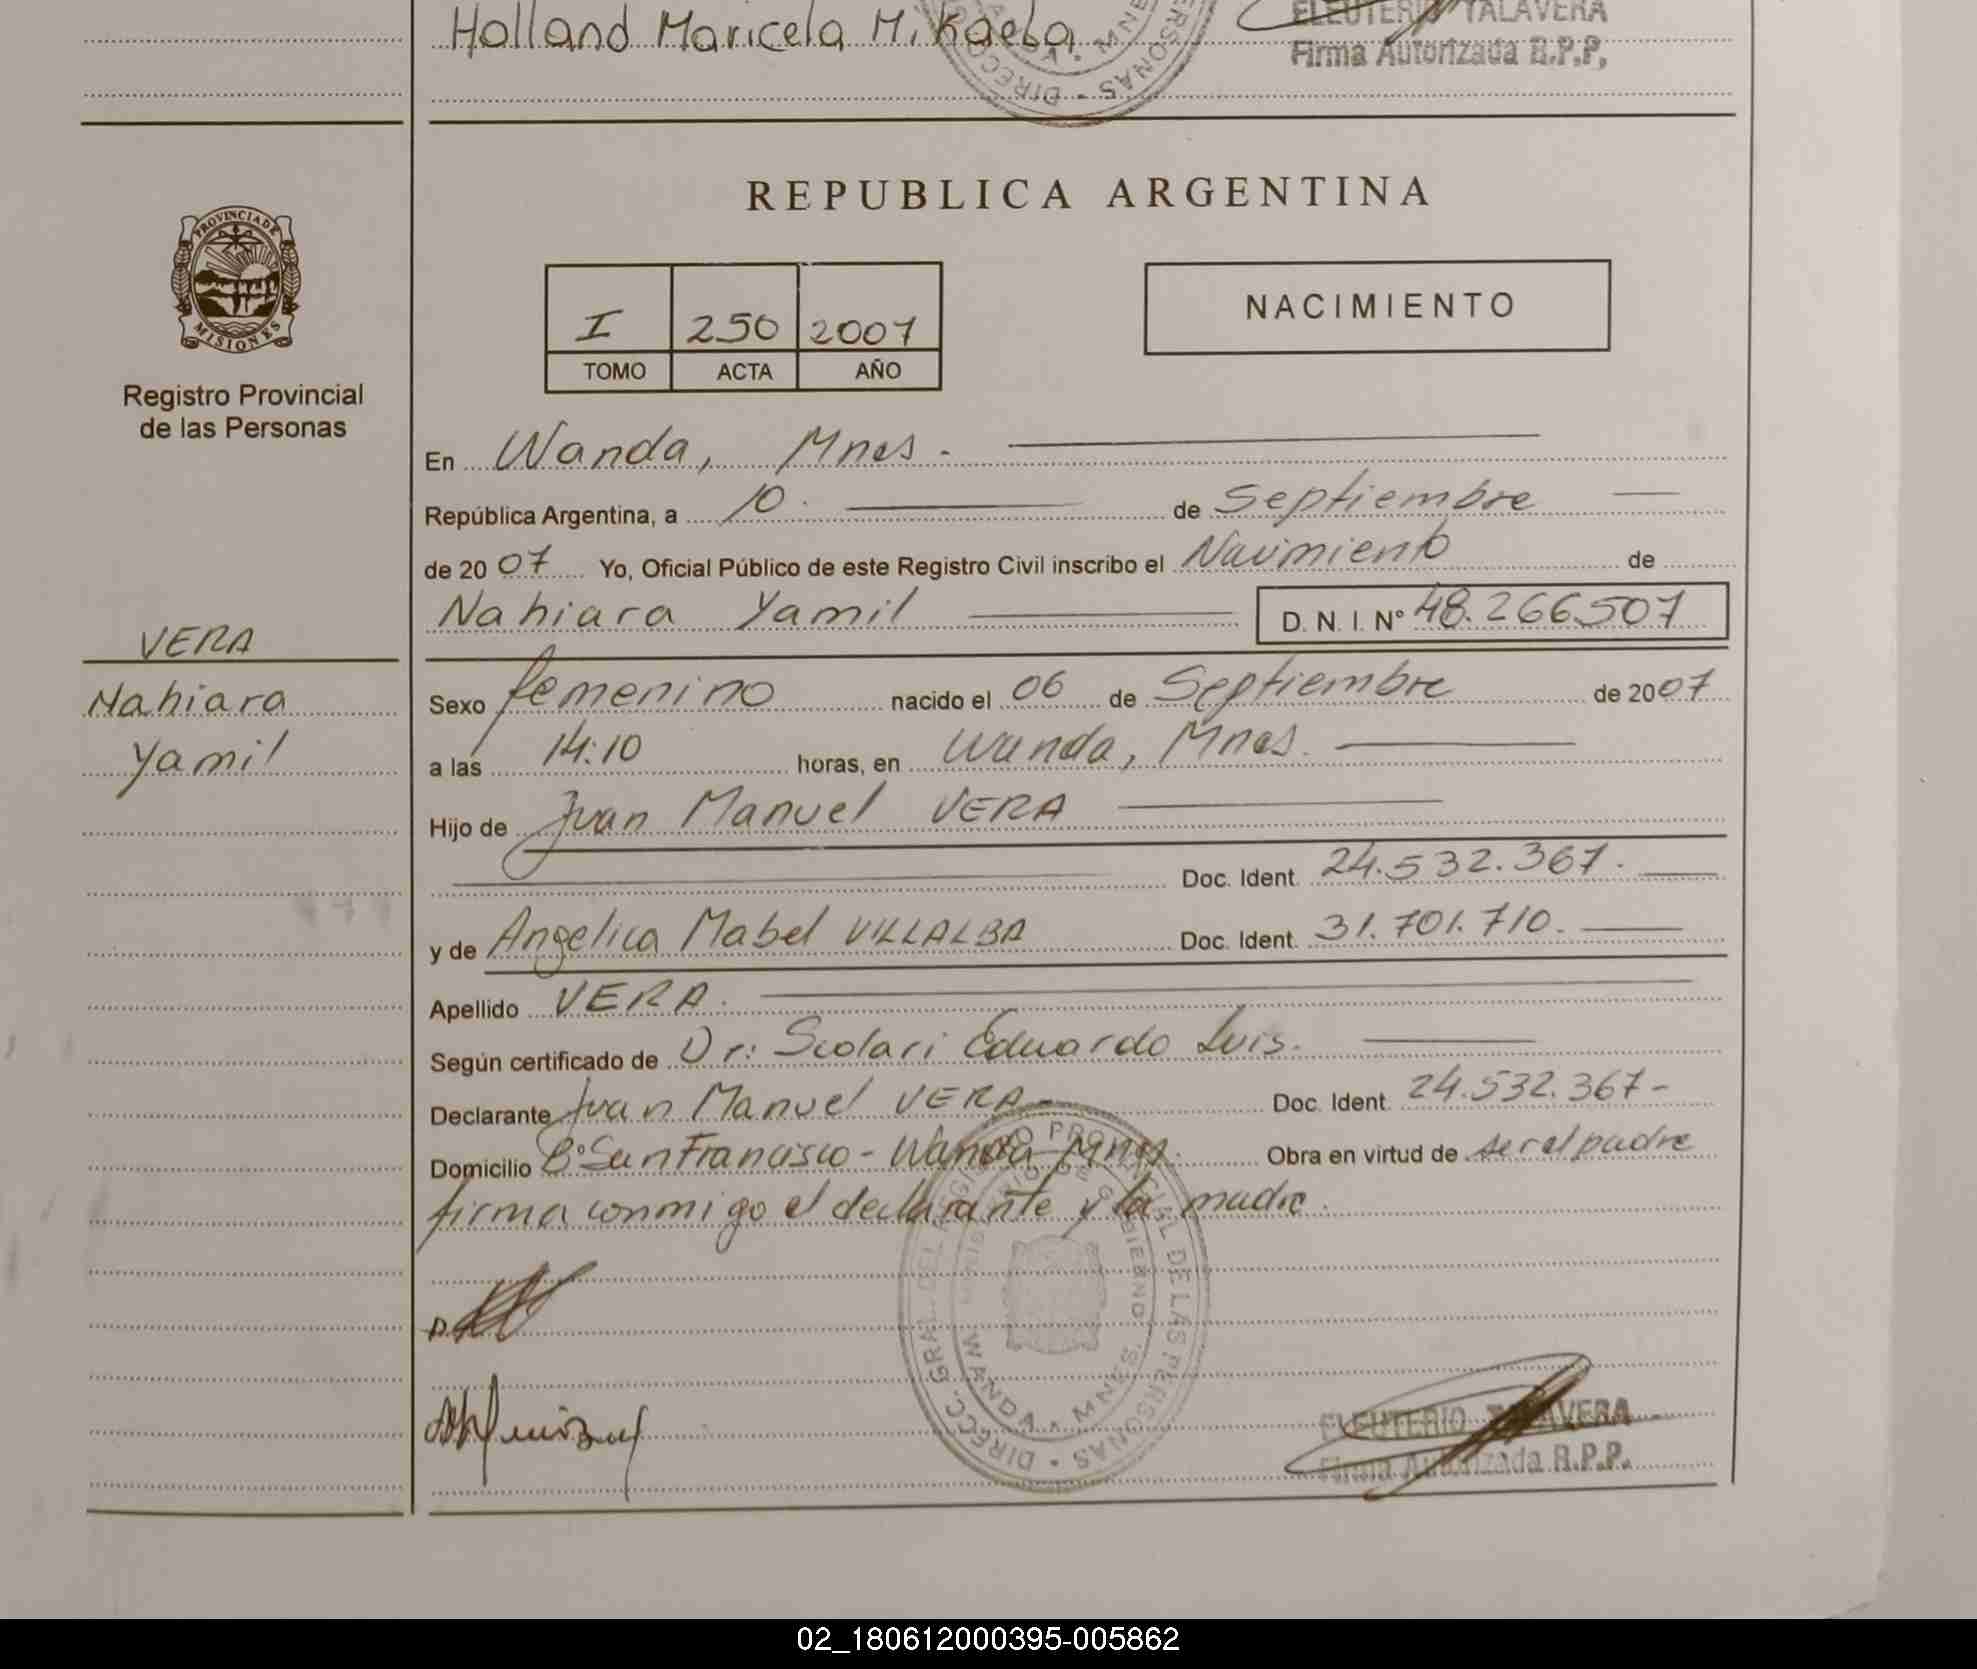 Holland Maricela Mikaela
ELEUTERIO TALAVERA
Firma Autorizada R.P.P.
DIRECC
PERSONAS
MNE
REPUBLICA ARGENTINA
PROVINCIA DE
MISIONES
Registro Provincial
de las Personas
I 250 2007
TOMO ACTA AÑO
NACIMIENTO
En Wanda, Mnes.
República Argentina, a 10 de Septiembre
de 2007 Yo, Oficial Público de este Registro Civil inscribo el Nacimiento de
Nahiara Yamil D. N. I. Nº 48.266.507
VERA
Nahiara
Yamil
Sexo femenino nacido el 06 de Septiembre de 2007
a las 14:10 horas, en Wanda, Mnes.
Hijo de Juan Manuel VERA
Doc. Ident. 24.532.367.
y de Angelica Mabel VILLALBA Doc. Ident. 31.701.710.
Apellido VERA.
Según certificado de Dr: Scolari Eduardo Luis.
Declarante Juan Manuel VERA Doc. Ident. 24.532.367-
Domicilio Bº San Francisco - Wanda Mnes. Obra en virtud de ser el padre
firma conmigo el declarante y la madre.
DIRECC. GRAL. DEL REGISTRO PROVINCIAL DE LAS PERSONAS
MINISTERIO DE GOBIERNO
WANDA MNES.
ELEUTERIO TALAVERA
Firma Autorizada R.P.P.
02_180612000395-005862